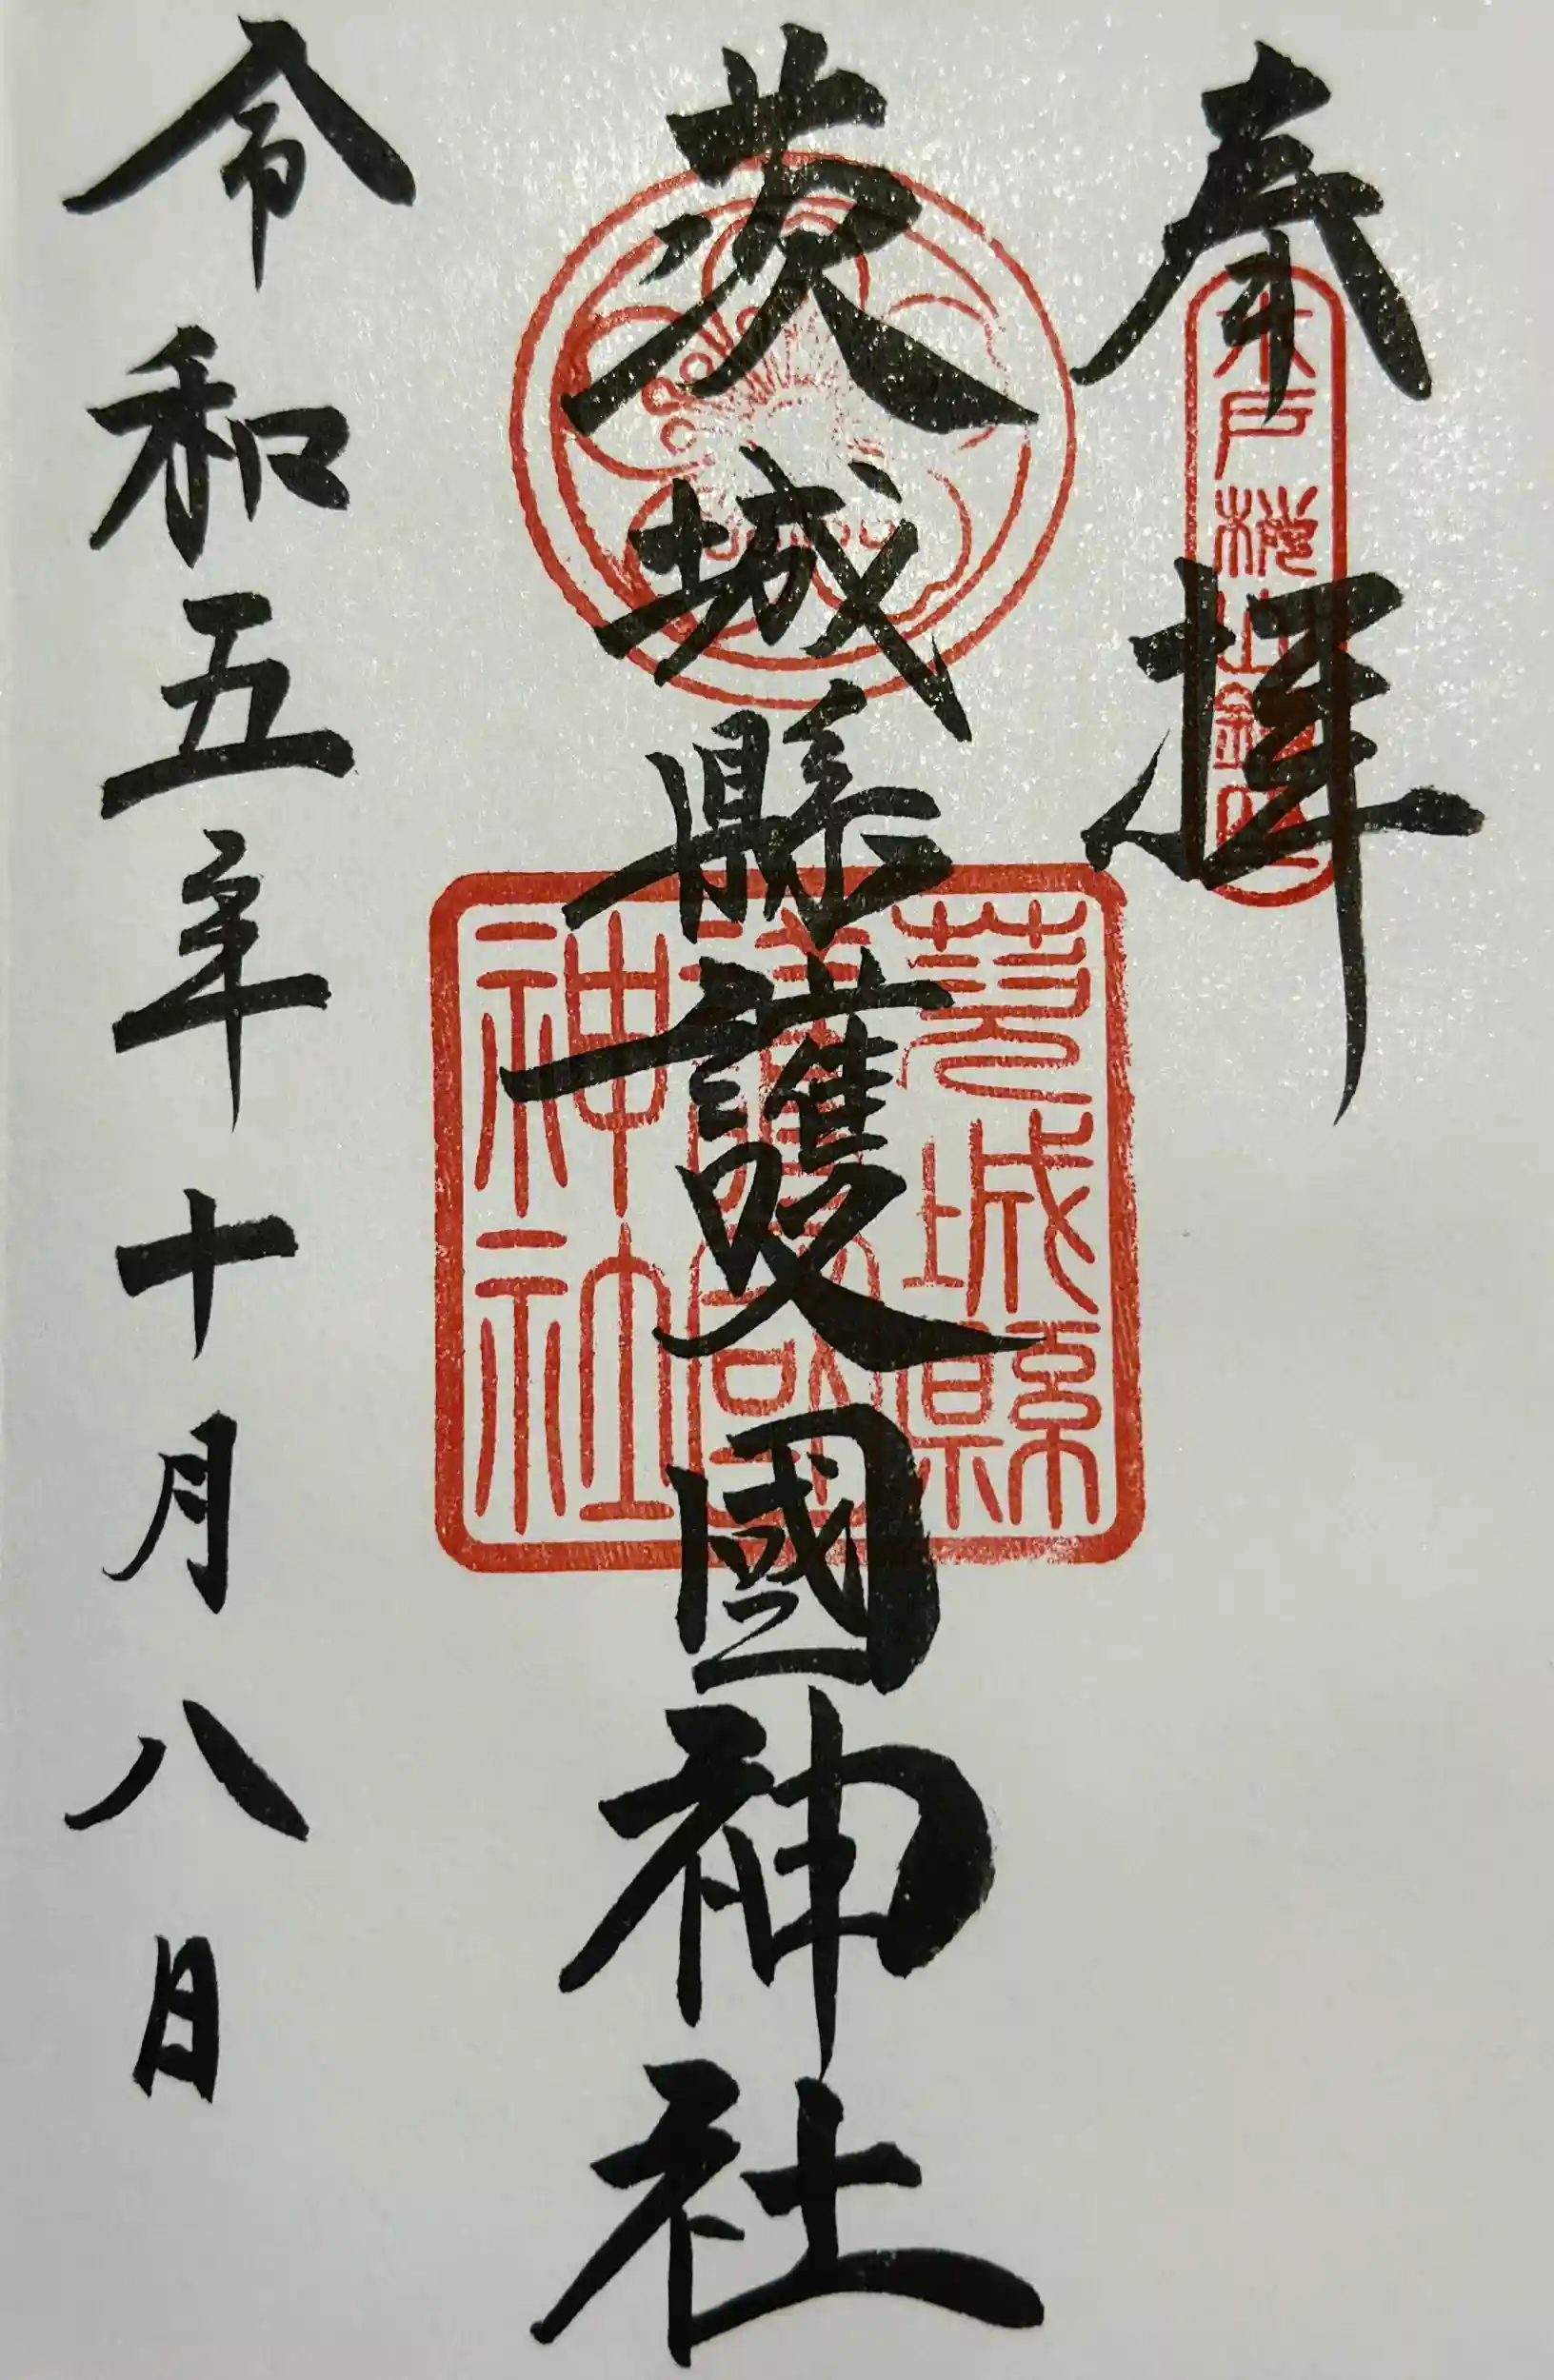 奉拝
水戸桜山鎮座
茨城縣護國神社
茨城縣
護國
神社
令和五年十月八日